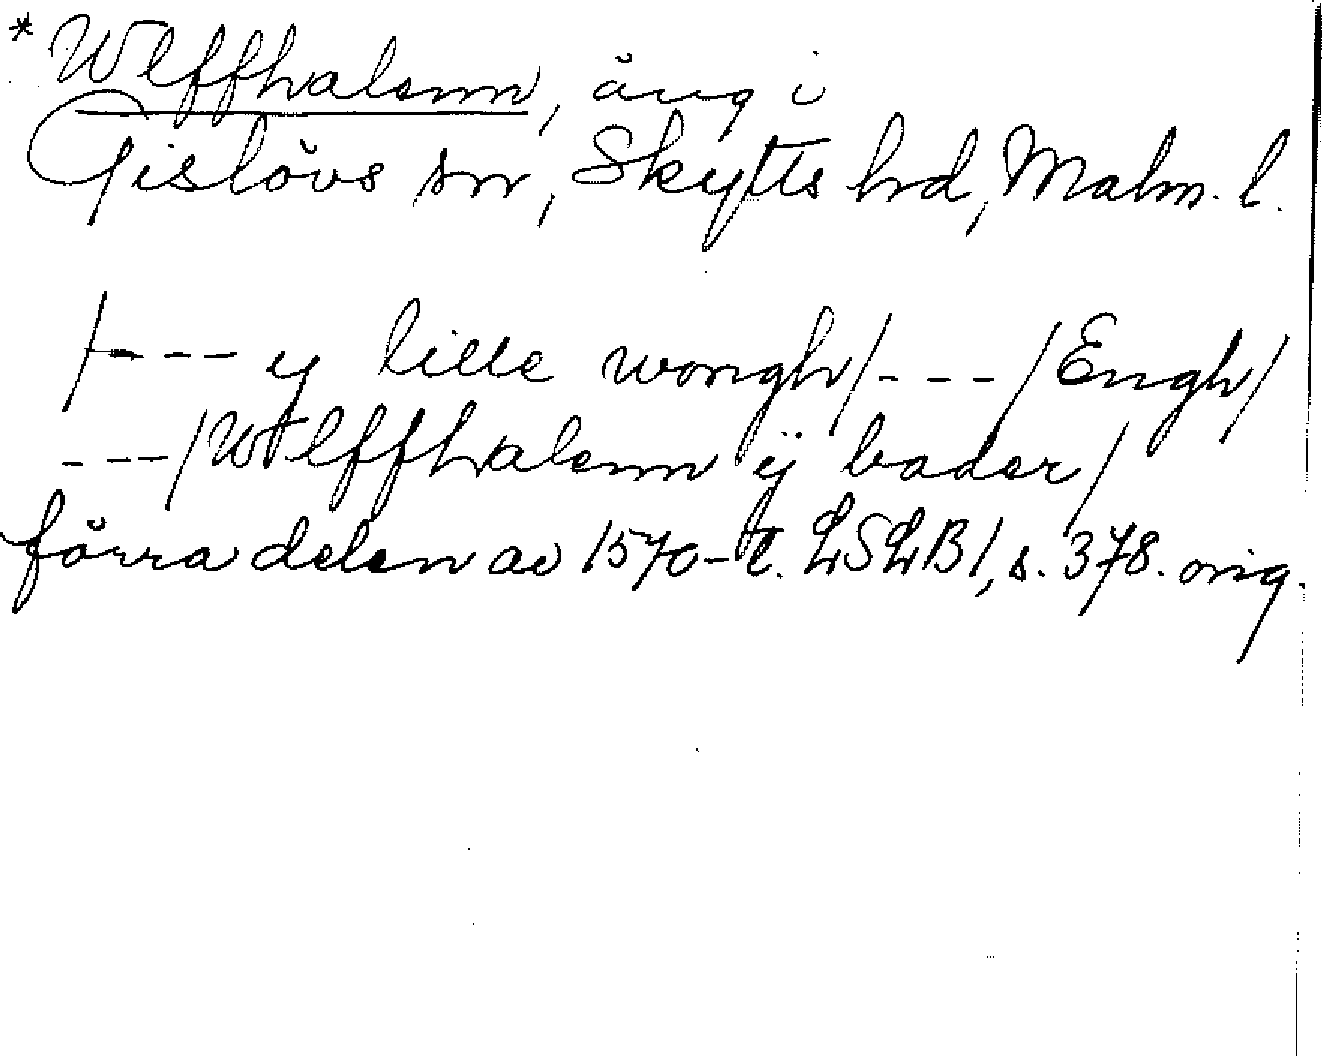 * Wlffhalsnn, äng i
Gislövs sn, Skytts hd, Malm. l.
/--- y lille wongh/---/Engh/
---/Wlffhalsnn ÿ bader/
förra delen av 1570-t. LSLB1, s. 378. orig.